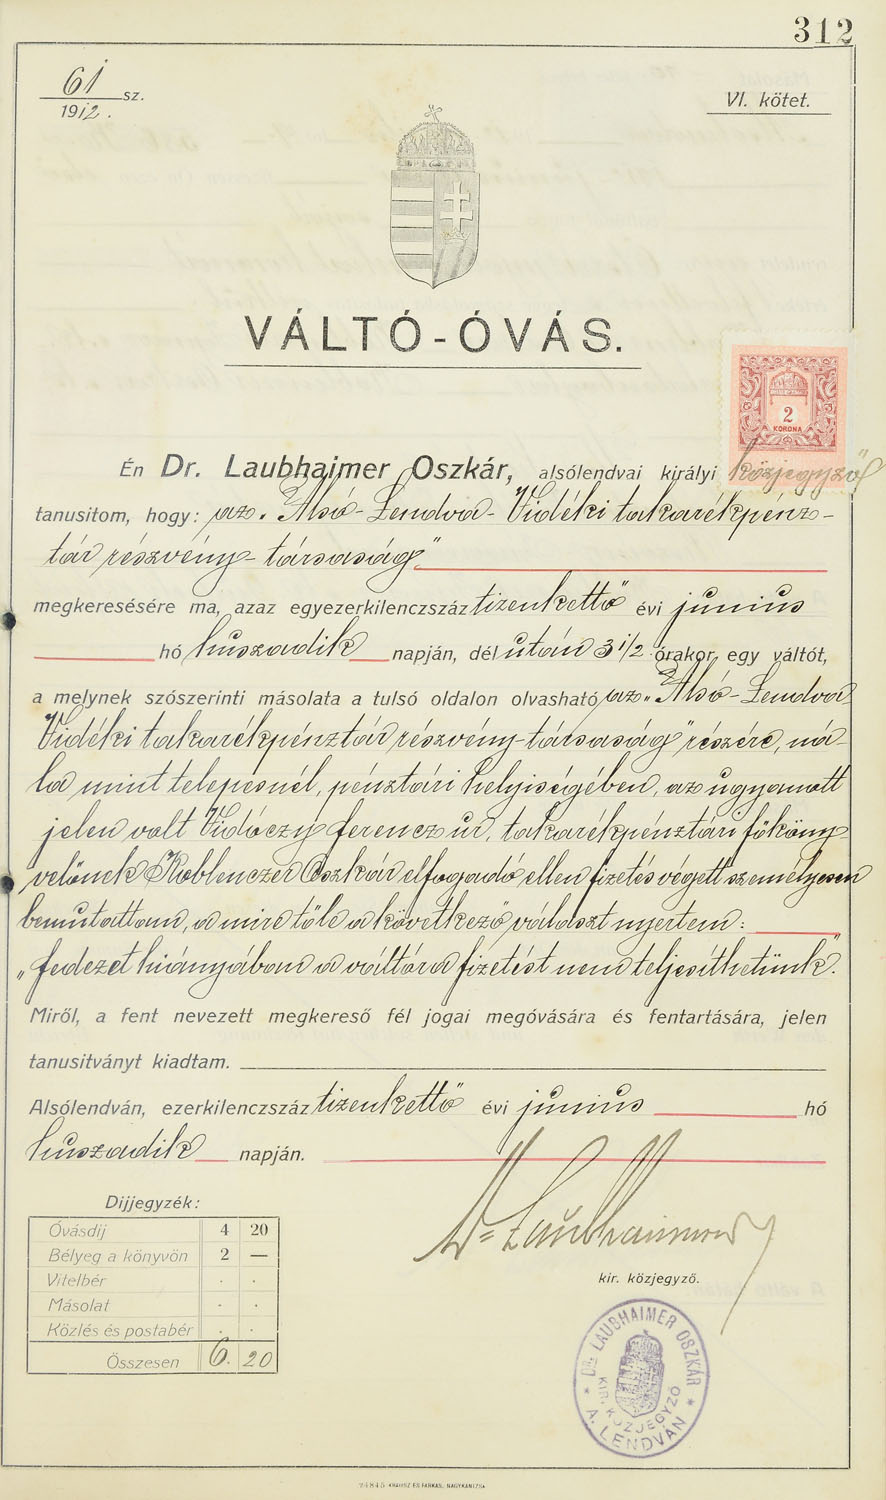 312
61
1912. sz.
VI. kötet.
VÁLTÓ-ÓVÁS.
2
KORONA
Én Dr. Laubhaimer Oszkár, alsólendvai királyi közjegyző
tanusitom, hogy: az „Alsó-Lendva-Vidéki takarékpénz-
tár részvény-társaság"
megkeresésére ma, azaz egyezerkilenczszáz tizenkettő évi június
hó huszadik napján, dél után 3 1/2 órakor egy váltót,
a melynek szószerinti másolata a tulsó oldalon olvasható, az „Alsó-Lendva
Vidéki takarékpénztár részvény-társaság" részére, ná-
la mint telepesnél, pénztári helyiségében, az ugyanott
jelen volt Vidóczy Ferencz úr, takarékpénztári főköny-
velőnek Koblenczer Oszkár elfogadó ellen fizetés végett személyesen
bemutattam, a mire tőle a következő választ nyertem:
„fedezet hiányában a váltóra fizetést nem teljesíthetünk".
Miről, a fent nevezett megkereső fél jogai megóvására és fentartására, jelen
tanusitványt kiadtam.
Alsólendván, ezerkilenczszáz tizenkettő évi június hó
huszadik napján.
Dr Laubhaimer
kir. közjegyző.
Dijjegyzék:
Óvásdij 4 20
Bélyeg a könyvön 2 —
Vitelbér . .
Másolat . .
Közlés és postabér . .
Összesen 6. 20
* DR. LAUBHAIMER OSZKÁR *
KIR. KÖZJEGYZŐ
A. LENDVÁN
24845 KRAUSZ ÉS FARKAS, NAGYKANIZSA